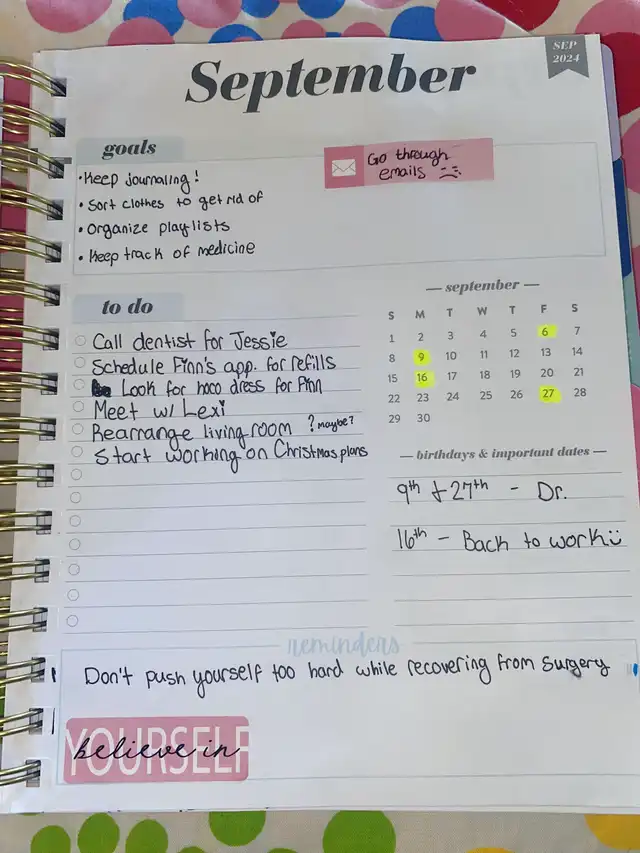 SEP
2024
September
goals
• Keep journaling!
• Sort clothes to get rid of
• Organize playlists
• Keep track of medicine
Go through
emails
to do
Call dentist for Jessie
Schedule Finn's app. for refills
Look for hoco dress for Finn
Meet w/ Lexi
Rearrange living room ?maybe?
Start working on Christmas plans
— september —
S M T W T F S
1 2 3 4 5 6 7
8 9 10 11 12 13 14
15 16 17 18 19 20 21
22 23 24 25 26 27 28
29 30
— birthdays & important dates —
9th + 27th - Dr.
16th - Back to work
reminders
Don't push yourself too hard while recovering from surgery
believe in
YOURSELF